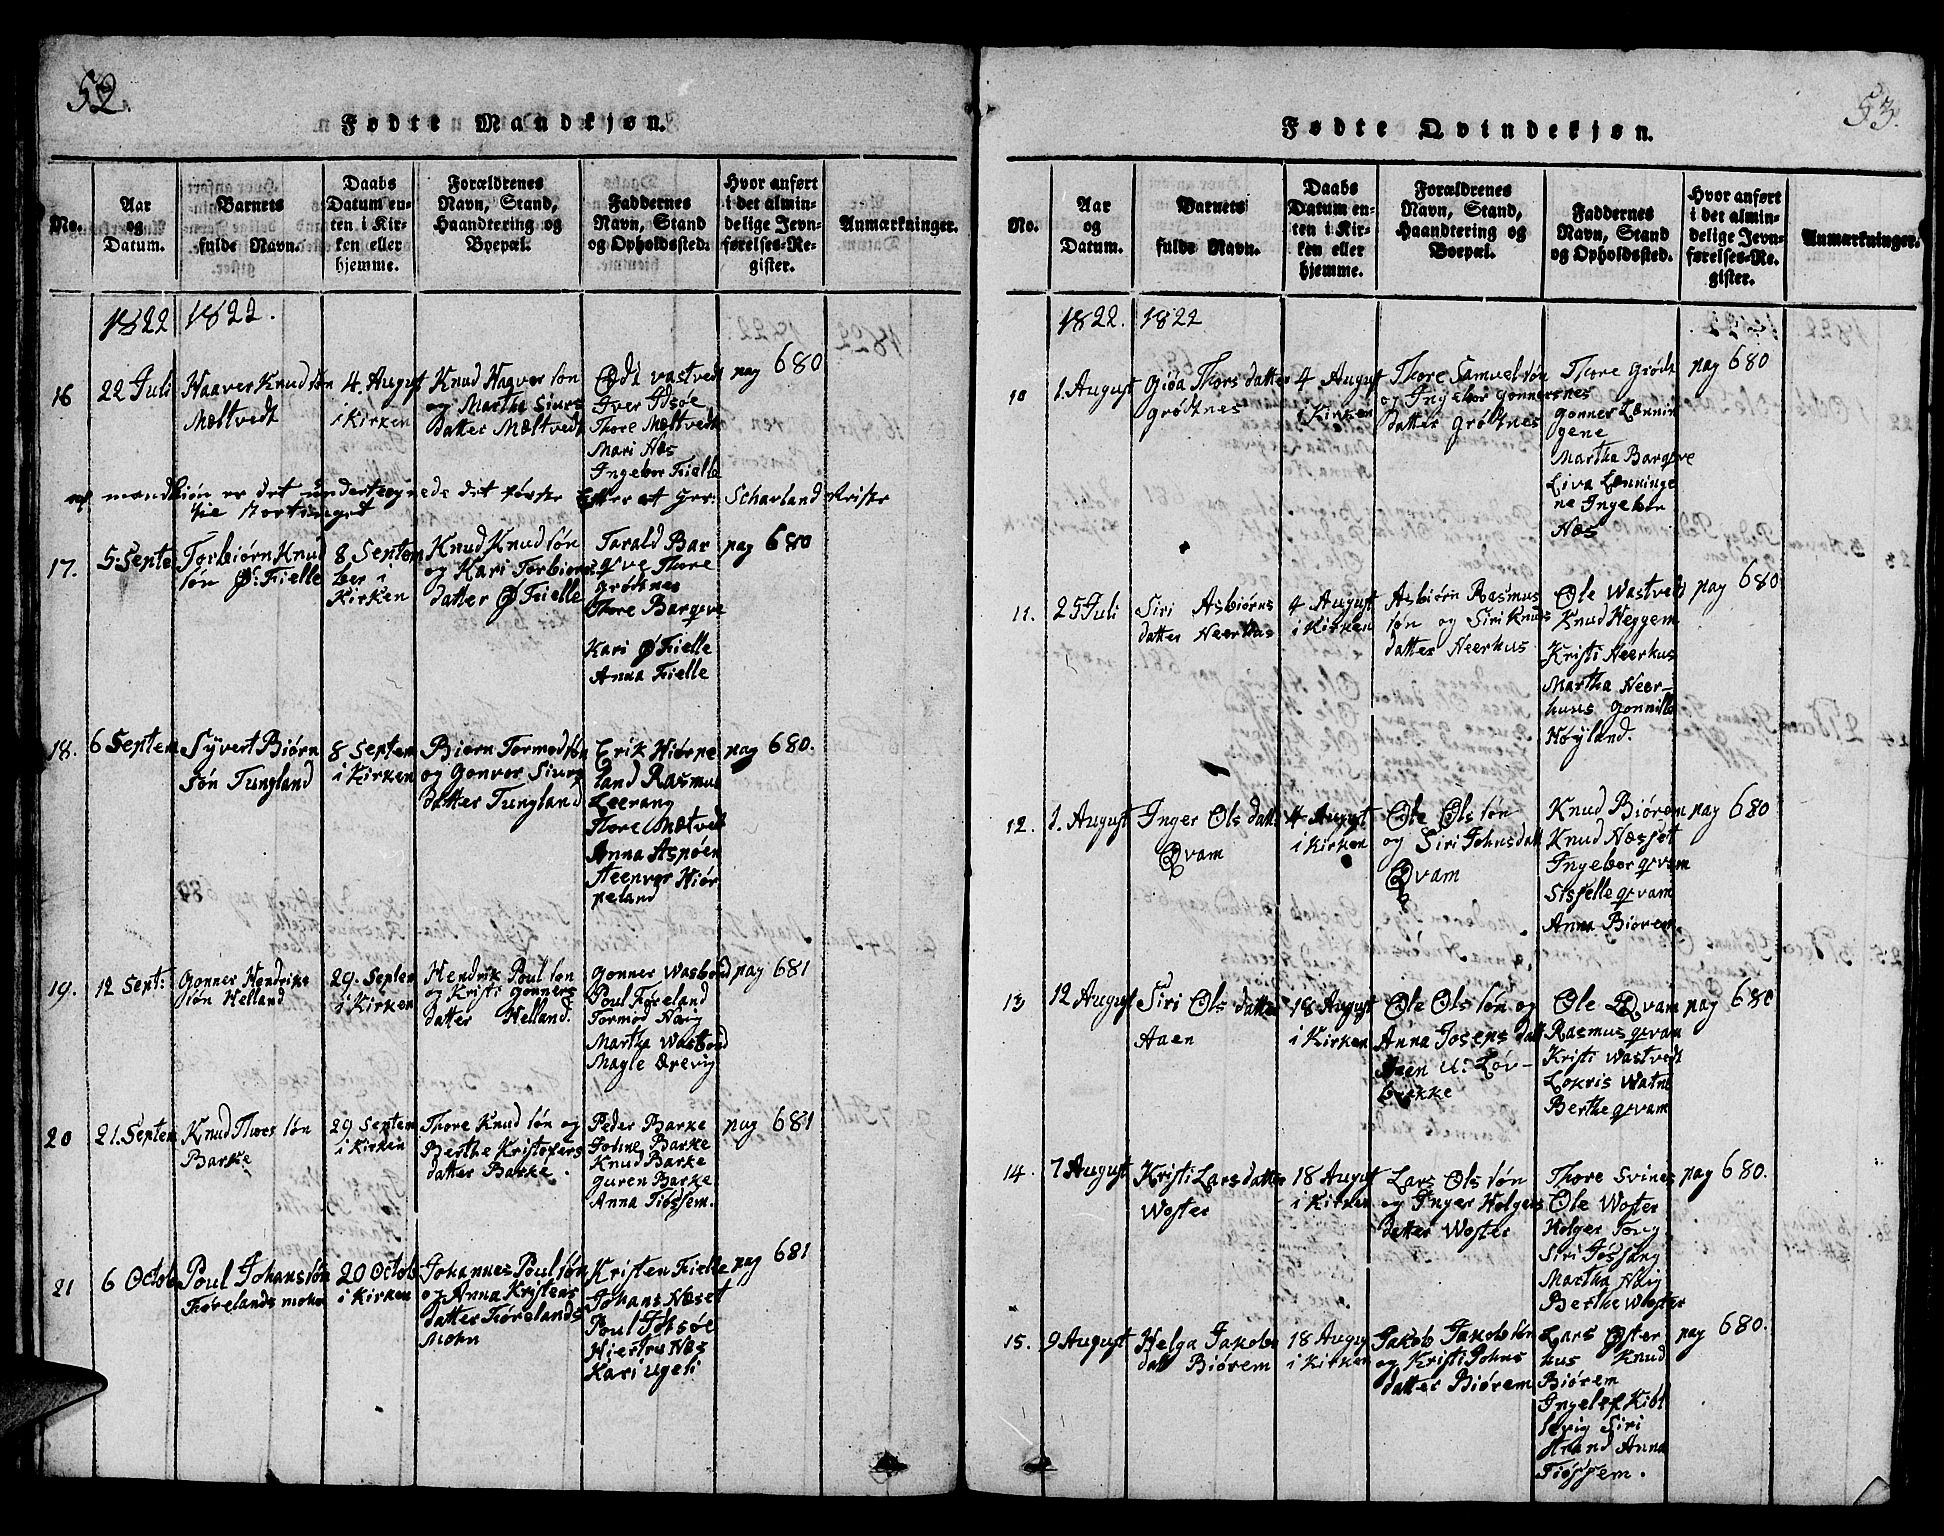 52.
Fødte Mandkjøn.
No.
Aar
og
Datum.
Barnets
fulde Navn.
Daabs
Datum en-
ten i Kir-
ken eller
hjemme.
Forældrenes
Navn, Stand,
Haandtering og
Boepæl.
Faddernes
Navn, Stand
og Opholdssted.
Hvor anført
i det almin-
delige Jevn-
førelses-Re-
gister.
Anmærkninger.
1822
1822.
16
22 Juli
Haaver Knud søn
Mæltvedt
4. August
i Kirken
Knud Haavor søn
og Martha Siurs
datter Mæltvedt
Odt Vastvedt
Iver Idsøe
Thore Mæltvedt
Mari Næs
Ingebor Fielle
pag 680
mandkiøn er det undertegnede det første Efter at
Stortinget
17.
5 Septe
Torbiørn Knud
søn Ø. Fielle
8 Septem
ber i
Kirken
Knud Knudsøn
og Kari Torbiørns
datter Ø Fielle
Tarald Bar
qve Thore
Grødtnes
Thore Barqve
Kari Ø Fielle
Anna Fielle
pag 680
18.
6 Septem
Syvert Biørn
søn Tungland
8 Septem
i Kirken
Biørn Tormod søn
og Gonvor Siurs
datter Tungland
Erik Hiørpe
land Rasmus
Leerang
Thore Mæltvedt
Anna Aspøen
Steenvor Hiør
peland
pag 680.
19.
12 Sept:
Gonner Hendriks
søn Helland
29. Septem
i Kirken
Hendrik Poul søn
og Kristi Gonners
datter Helland.
Gonner Wasbond
Poul Føreland
Tormod Narig
Martha Wasbond
Magle Ørevig
pag 681
20
21. Septem
Knud Thores søn
Barke
29 Septem
i Kirken
Thore Knud søn og
Berthe Kristofers
datter Barke.
Peder Barke
Joline Barke
Knud Barke
Guren Barke
Anna Tiøssem.
pag 681
21
6 Octob
Poul Johans søn
Førelands mohn
20 Octob
i Kirken
Johannes Poul søn
og Anna Kristens
datter Førelands
Mohn
Kristen Fielle
Johans Næset
Poul Idsøe
Hiertru Næs
Kari Ugeli
pag 681
53.
Fødte Qvindekjøn.
No.
Aar
og
Datum.
Barnets
fulde Navn.
Daabs
Datum en-
ten i Kir-
ken eller
hjemme.
Forældrenes
Navn, Stand,
Haandtering og
Boepæl.
Faddernes
Navn, Stand
og Opholdssted.
Hvor anført
i det almin-
delige Jevn-
førelses-Re-
gister.
Anmærkninger.
1822.
1822
10
1. August
Giøa Thors datter
Grødtnes
4 August
i Kirken
Thore Samuel søn
og Ingebor Gonners
datter Grødtnes
Thore Grødt
nes
Gonner Lænnin
gene
Martha Barqve
Liva Lænninge
ne Ingebor
Næs
pag 680
11.
25 Juli
Siri Asbiørns
datter Neerhus
4 August
i Kirken
Asbiørn Rasmus
søn og Siri Knuds
datter Neerhus
Ole Wastved
Knud Heggem
Kristi Neerhus
Martha Neer-
huus Gonnille
Høyland.
pag 680
12.
1. August
Inger Ols datter
Qvam
4 August
i Kirken
Ole Ols søn
og Siri Johns datt
Qvam
Knud Biørem
Knud Næsset
Ingebor qvam
Sisselle qvam
Anna Biørem
pag 680
13
12. August
Siri Ols datter
Aaen
18 August
i Kirken
Ole Ols søn og
Anna Joseps datt
Aaen U: Løv-
brekke
Ole Qvam
Rasmus qvam
Kristi Wastvedt
Lokris Watne
Berthe qvam
pag 680
14.
7 August
Kristi Lars datter
Woster
18 August
i Kirken
Lars Ols søn
og Inger Holgers
datter Woster
Thore Svines
Ole Woster
Holger Tovg
Siri Jøssang
Martha Narig
Berthe Woster
pag 680.
15.
9 August
Helga Jakobs
datt Biørem
18 August
i Kirken
Jakob Jakob søn
og Kristi Johns
datter Biørem
Lars Øster
hus Knud
Biørem
Ingelef Kibl
sevig Siri
Strand Anna
Tiøssem.
pag 680.